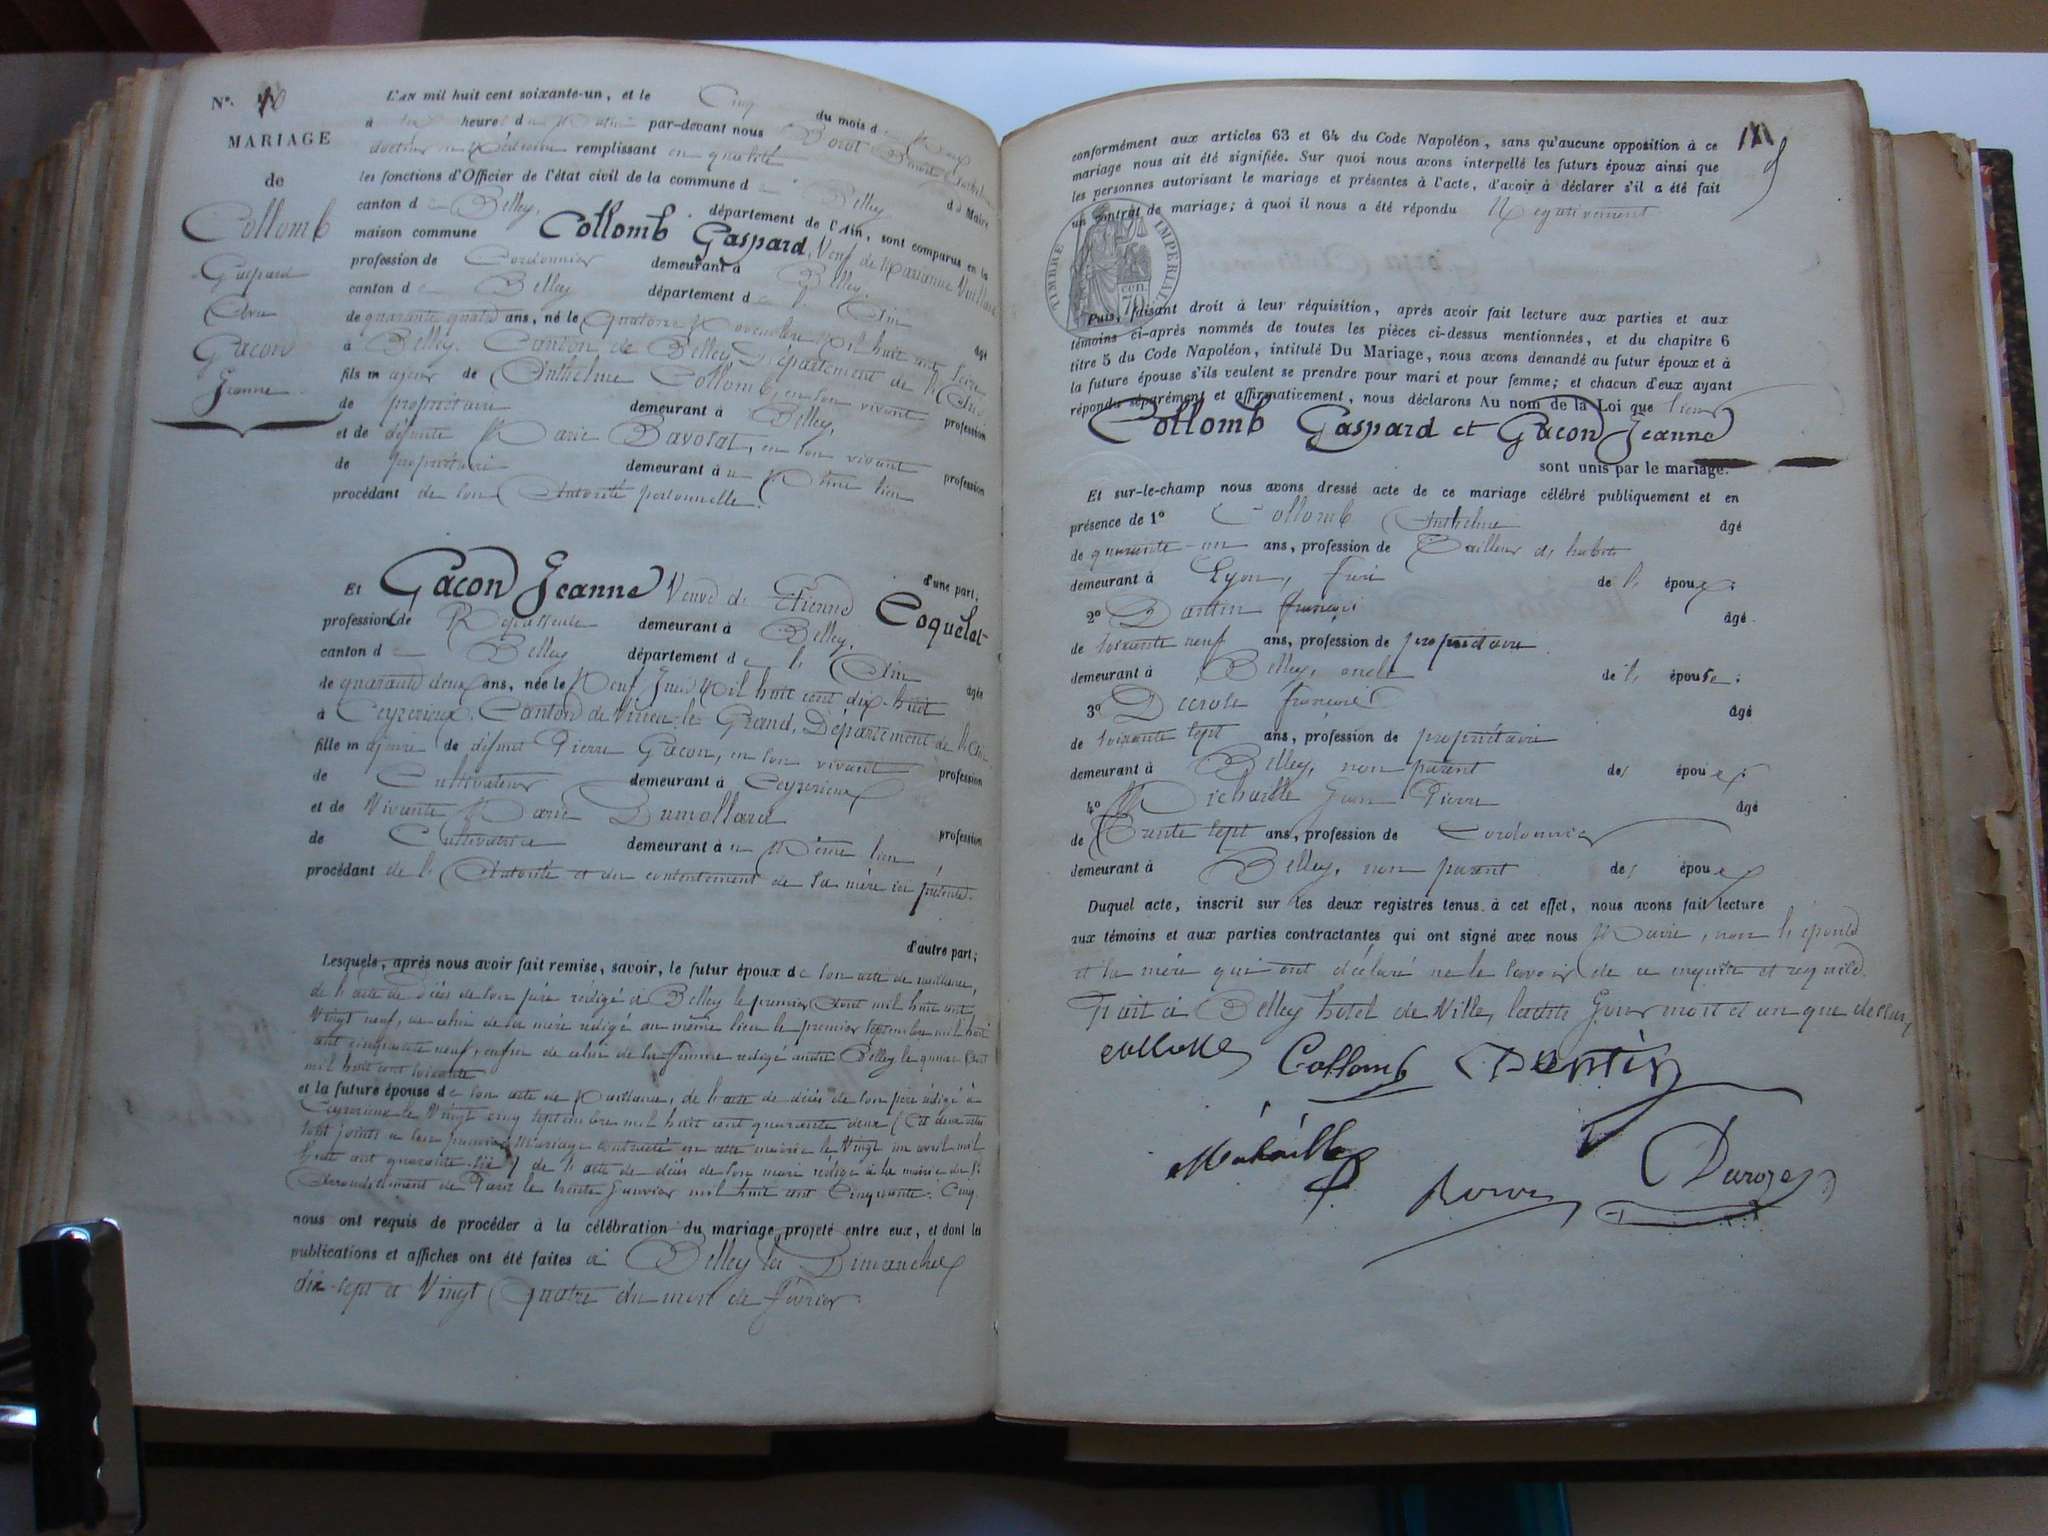 N°. 10
MARIAGE
de
Collomb
Gaspard
Gacon
Jeanne
L'AN mil huit cent soixante-un, et le Cinq du mois de Mars
à heure du Matin par-devant nous
docteur en Médecine remplissant en qualité de Maire
les fonctions d'Officier de l'état civil de la commune de Belley
canton de Belley, département de l'Ain, sont comparus en la
maison commune Collomb Gaspard, Veuf de Marianne
profession de Cordonnier demeurant à Belley,
canton de Belley département de l'Ain âgé
de quarante quatre ans, né le Quatorze Novembre Mil huit cent seize
à Belley, Canton de Belley, Département de l'Ain
fils majeur de Anthelme Collomb, en son vivant profession
de propriétaire demeurant à Belley,
et de défunte Marie Davorat, en son vivant profession
de propriétaire demeurant au Même lieu
procédant de son Autorité personnelle.
d'une part;
Et Gacon Jeanne Veuve de Etienne Coquelet
profession de Repasseuse demeurant à Belley,
canton de Belley département de l'Ain âgée
de quarante deux ans, née le Neuf Juin Mil huit cent dix-huit
à Ceyzerieux, Canton de Virieu le Grand, Département de l'Ain
fille majeure de défunt Pierre Gacon, en son vivant profession
de Cultivateur demeurant à Ceyzerieux
et de Vivante Marie Dumollard profession
de Cultivatrice demeurant au Même lieu
procédant de l'Autorité et du consentement de sa mère ici présente.
d'autre part;
Lesquels, après nous avoir fait remise, savoir, le futur époux de son acte de naissance,
de l'acte de décès de son père rédigé à Belley le premier Août mil huit cent
Vingt neuf, de celui de sa mère rédigé au même lieu le premier septembre mil huit
cent cinquante neuf, enfin de celui de sa femme rédigé Belley le
mil huit cent soixante
et la future épouse de son acte de Naissance, de l'acte de décès de son père rédigé à
Ceyzerieux le Vingt cinq septembre mil huit cent quarante deux (
sont joints à son premier Mariage contracté en cette mairie le Vingt un avril mil
huit cent quarante six) de l'acte de décès de son mari rédigé à la mairie du
Arrondissement de Paris le trente Janvier mil huit cent Cinquante Cinq.
nous ont requis de procéder à la célébration du mariage projeté entre eux, et dont les
publications et affiches ont été faites à Belley les Dimanches
dix-sept et Vingt Quatre du mois de Février
conformément aux articles 63 et 64 du Code Napoléon, sans qu'aucune opposition à ce
mariage nous ait été signifiée. Sur quoi nous avons interpellé les futurs époux ainsi que
les personnes autorisant le mariage et présentes à l'acte, d'avoir à déclarer s'il a été fait
un contrat de mariage; à quoi il nous a été répondu Négativement
TIMBRE IMPÉRIAL
70 CEN.
Puis, faisant droit à leur réquisition, après avoir fait lecture aux parties et aux
témoins ci-après nommés de toutes les pièces ci-dessus mentionnées, et du chapitre 6
titre 5 du Code Napoléon, intitulé Du Mariage, nous avons demandé au futur époux et à
la future épouse s'ils veulent se prendre pour mari et pour femme; et chacun d'eux ayant
répondu séparément et affirmativement, nous déclarons Au nom de la Loi que
Collomb Gaspard et Gacon Jeanne
sont unis par le mariage.
Et sur-le-champ nous avons dressé acte de ce mariage célébré publiquement et en
présence de 1° Collomb Anthelme âgé
de quarante-un ans, profession de Tailleur d'habits
demeurant à Lyon, frère de l'époux;
2° Dantin françois âgé
de soixante neuf ans, profession de propriétaire
demeurant à Belley, oncle de l'épouse;
3° Decroze françois âgé
de soixante sept ans, profession de propriétaire
demeurant à Belley, non parent des époux;
4° Michaille Jean Pierre âgé
de Trente sept ans, profession de Cordonnier
demeurant à Belley, non parent des époux
Duquel acte, inscrit sur les deux registres tenus à cet effet, nous avons fait lecture
aux témoins et aux parties contractantes qui ont signé avec nous Maire, non l'épouse
et la mère qui ont déclaré ne le savoir de ce enquise et requise.
Fait à Belley hôtel de Ville, lesdits Jour mois et an que dessus,
Collomb Dantin